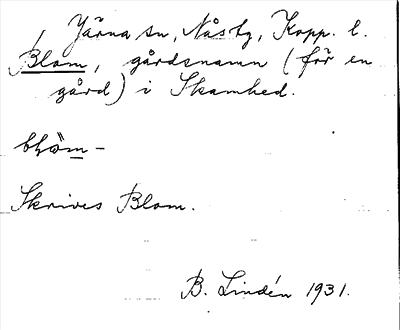 Järna sn, Nåsby, Kopp. l.
Blom, gårdsnamn (för en
gård) i Skamhed.
Skrives Blom.
B. Lindén 1931.